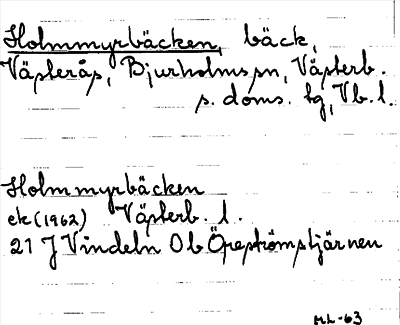 Holmmyrbäcken, bäck,
Västerås, Bjurholms sn, Västerb.
s. doms. tg, Vb. l.
Holmmyrbäcken
ek (1962) Västerb. l.
21 J Vindeln 0 b Öreströmstjärnen
ML-63